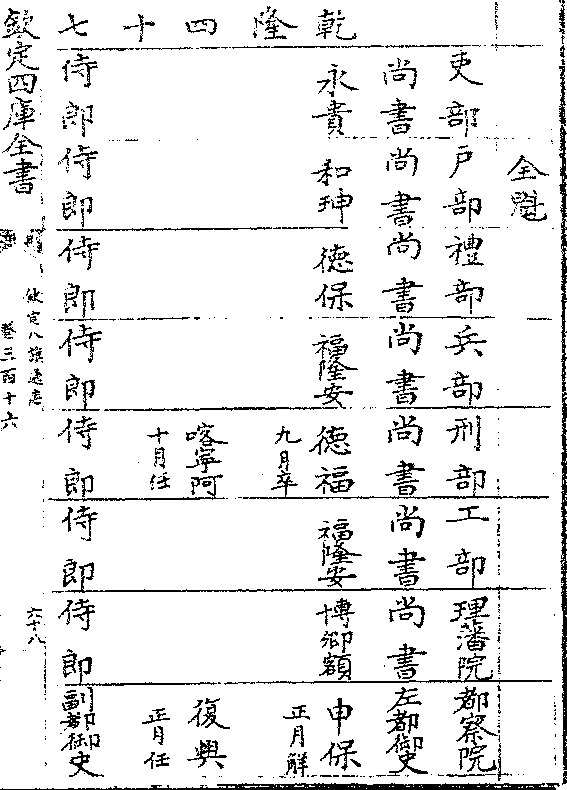 全魁
乾隆四十七
吏部 戶部 禮部 兵部 刑部 工部 理藩院 都察院
尚書 尚書 尚書 尚書 尚書 尚書 尚書 左都御史
永貴 和珅 德保 福隆安 德福 福隆安 博卿額 申保
九月卒 正月解
喀寧阿 復興
十月任 正月任
侍郎 侍郎 侍郎 侍郎 侍郎 侍郎 侍郎 副都御史
欽定八旗通志 六十八
卷三百十六
欽定四庫全書